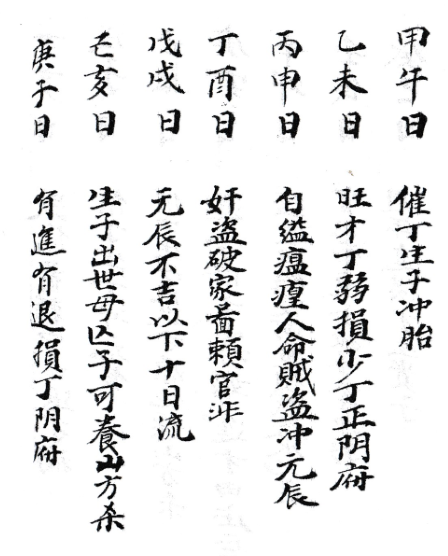 甲午日 催丁生子冲胎
乙未日 旺才丁弱損少丁正阴府
丙申日 自缢瘟瘟人命贼盗冲元辰
丁酉日 奸盗破家啚頼官非
戊戌日 元辰不吉以下十日流
己亥日 生子出世母亡子可養山方杀
庚子日 有進有退損丁阴府